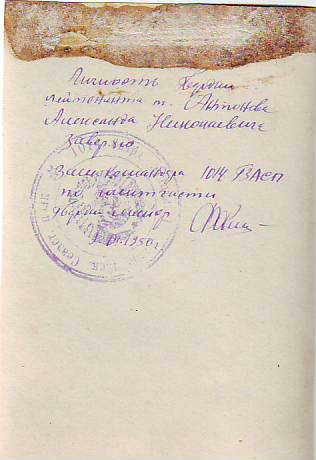 Личность Гвардии
лейтенанта т. Антонова
Александра Николаевича
Заверяю
Зам. командира 1014 ГЗАСП
по политчасти
гвардии майор
1950 г.